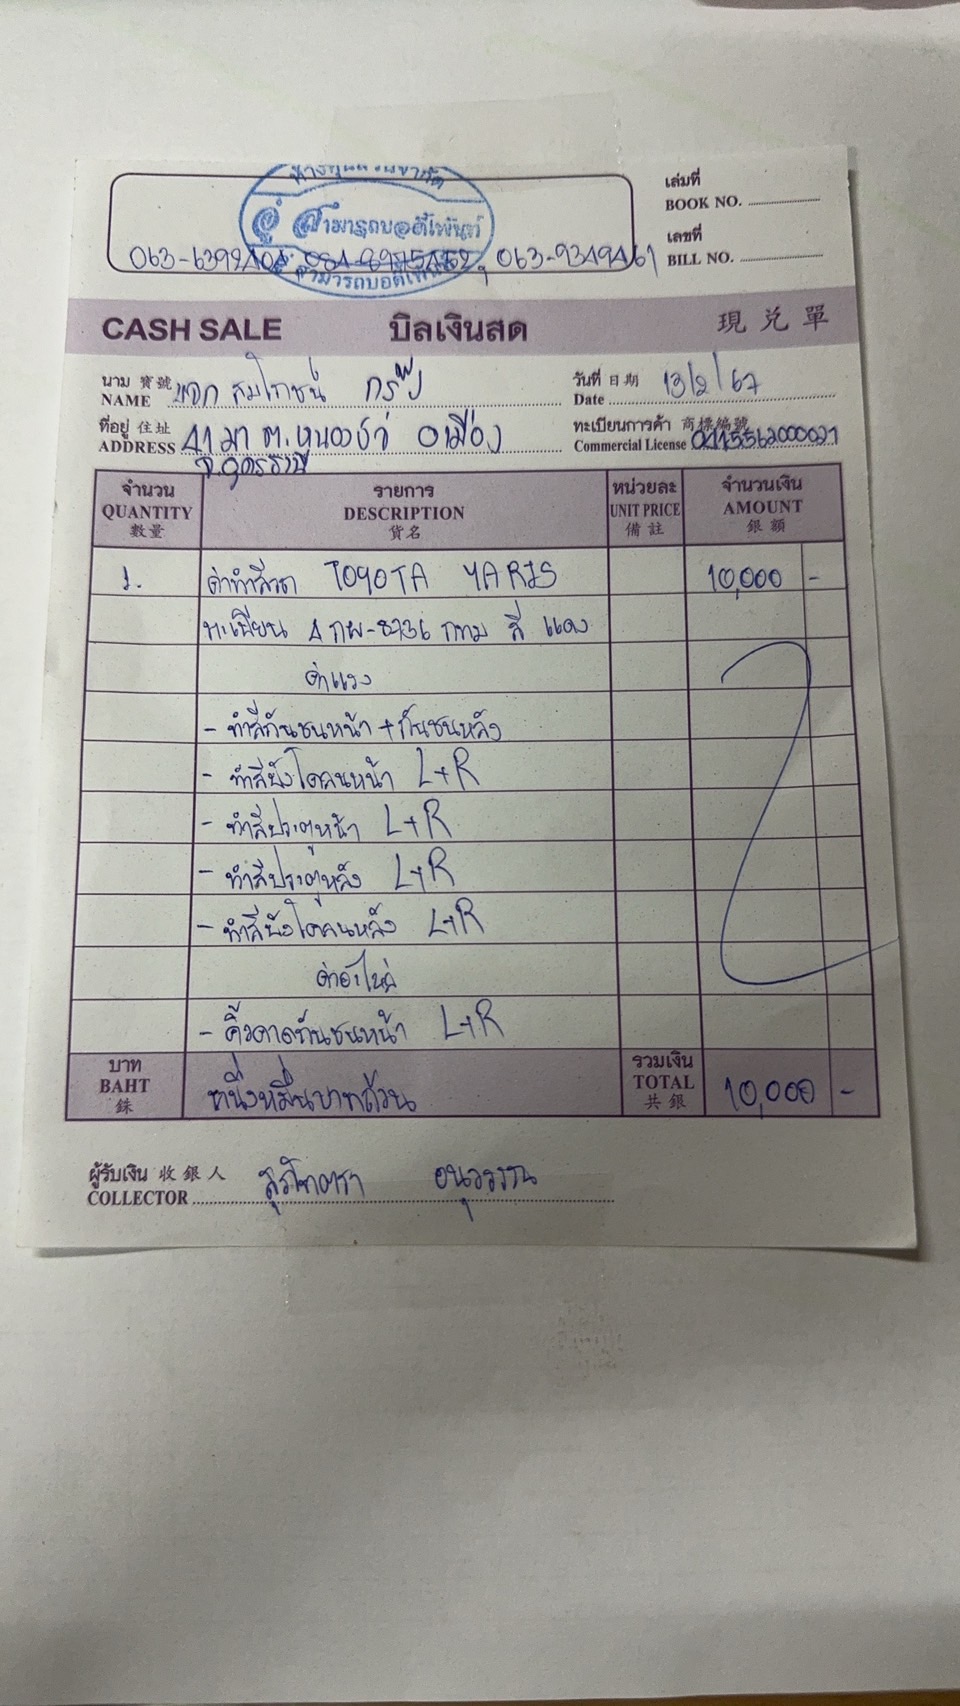 ห้างหุ้นส่วนจำกัด
อู่ สามารถบอดี้เพ้นท์
063- , 063-9349461
เล่มที่
BOOK NO.
เลขที่
BILL NO.
CASH SALE บิลเงินสด 現兌單
นาม 寶號 NAME กรุ๊ป
วันที่ 日期 Date 13/2/67
ที่อยู่ 住址 ADDRESS 41 ต. อ.เมือง
จ.อุดรธานี
ทะเบียนการค้า 商標編號 Commercial License 0415562000021
จำนวน QUANTITY 數量 รายการ DESCRIPTION 貨名 หน่วยละ UNIT PRICE 備註 จำนวนเงิน AMOUNT 銀額
1. ค่าทำสีรถ TOYOTA YARIS 10,000 -
ทะเบียน 4 กผ-8736 กทม สี แดง
ค่าแรง
- ทำสีกันชนหน้า + กันชนหลัง
- ทำสีบังโคลนหน้า L+R
- ทำสีประตูหน้า L+R
- ทำสีประตูหลัง L+R
- ทำสีบังโคลนหลัง L+R
ค่าอะไหล่
- คิ้วคาดกันชนหน้า L+R
บาท BAHT 銖 หนึ่งหมื่นบาทถ้วน รวมเงิน TOTAL 共銀 10,000 -
ผู้รับเงิน 收銀人
COLLECTOR อนุวรรณ